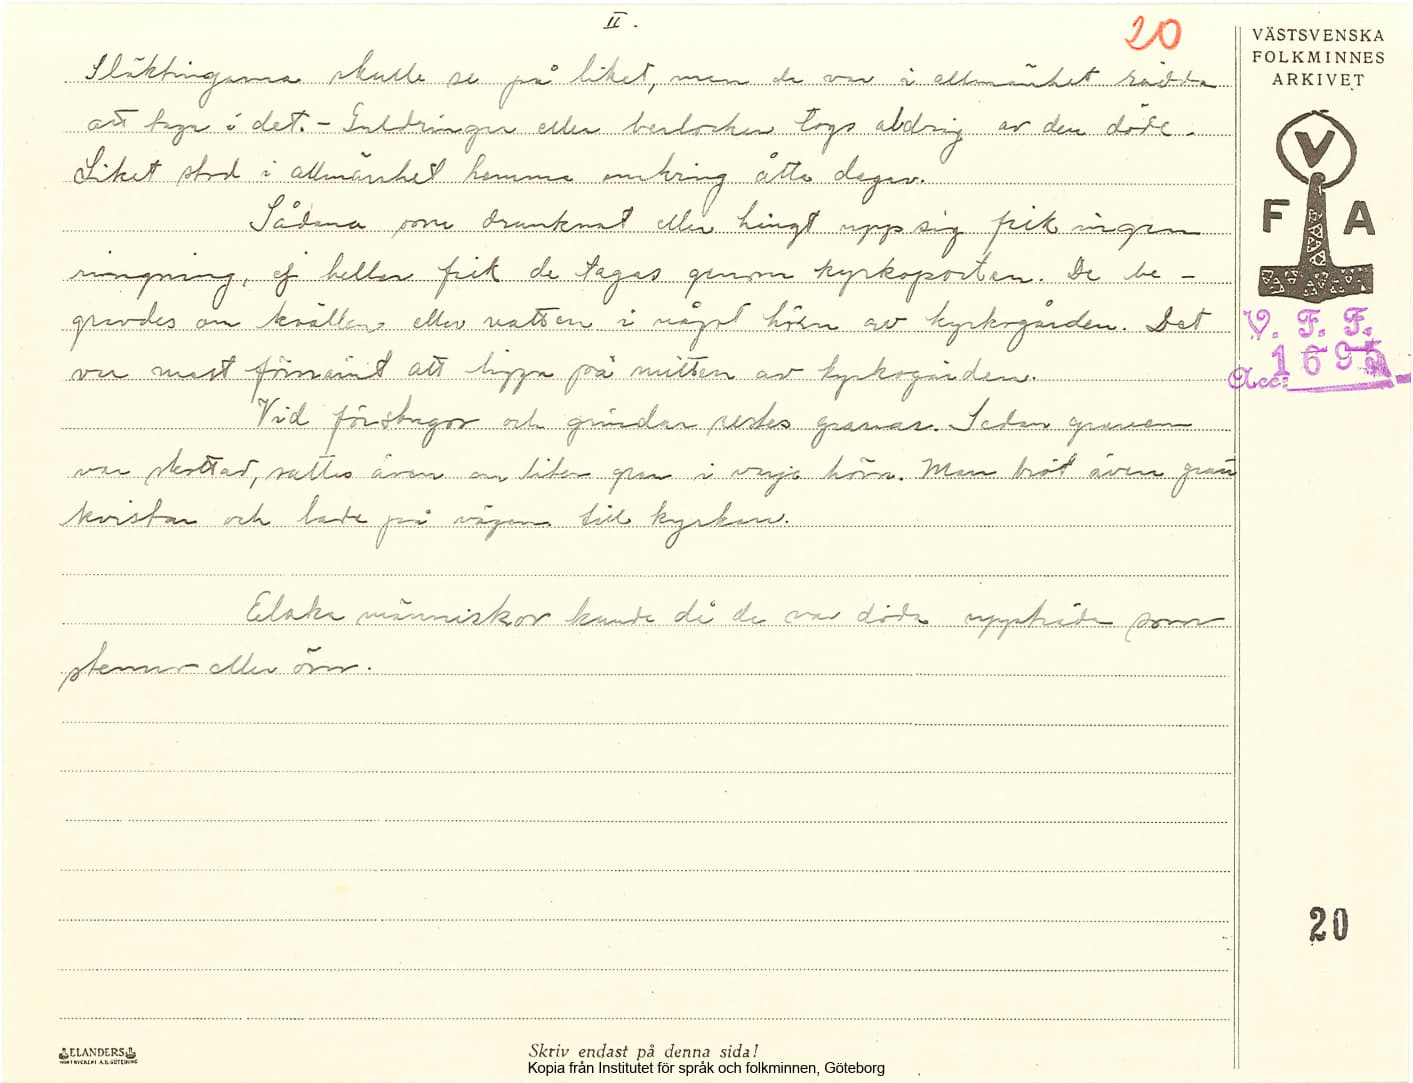 II.
20
Släktingarna skulle se på liket, men de var i allmänhet rädda
att taga i det. – Guldringar eller berlocker togs aldrig av den döde.
Liket stod i allmänhet hemma omkring åtta dagar.
Sådana som drunknat eller hängt upp sig fick ingen
ringning, ej heller fick de tagas genom kyrkoporten. De be-
gravdes om kvällen eller natten i något hörn av kyrkogården. Det
var mest förnämt att ligga på mitten av kyrkogården.
Vid förstugor och grindar restes granar. Sedan graven
var skottad, sattes även en liten gran i varje hörn. Man bröt även gran
kvistar och lade på vägen till kyrkan.
Elaka människor kunde då de var döda uppträda som
stenar eller örn.
VÄSTSVENSKA
FOLKMINNES
ARKIVET
V
F A
V. F. F.
Acc: 1695
20
ELANDERS
GÖTEBORG
Skriv endast på denna sida!
Kopia från Institutet för språk och folkminnen, Göteborg